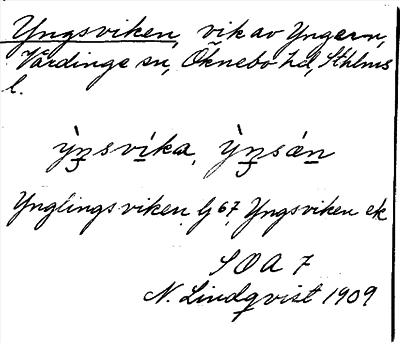 Yngsviken, vik av Yngern,
Vårdinge sn, Öknebo hd, Sthlms
l.
ỳŋsvíka, Ỳŋsán
Ynglingsviken Gj 67, Yngsviken ek
SOA 7
N. Lindqvist 1909